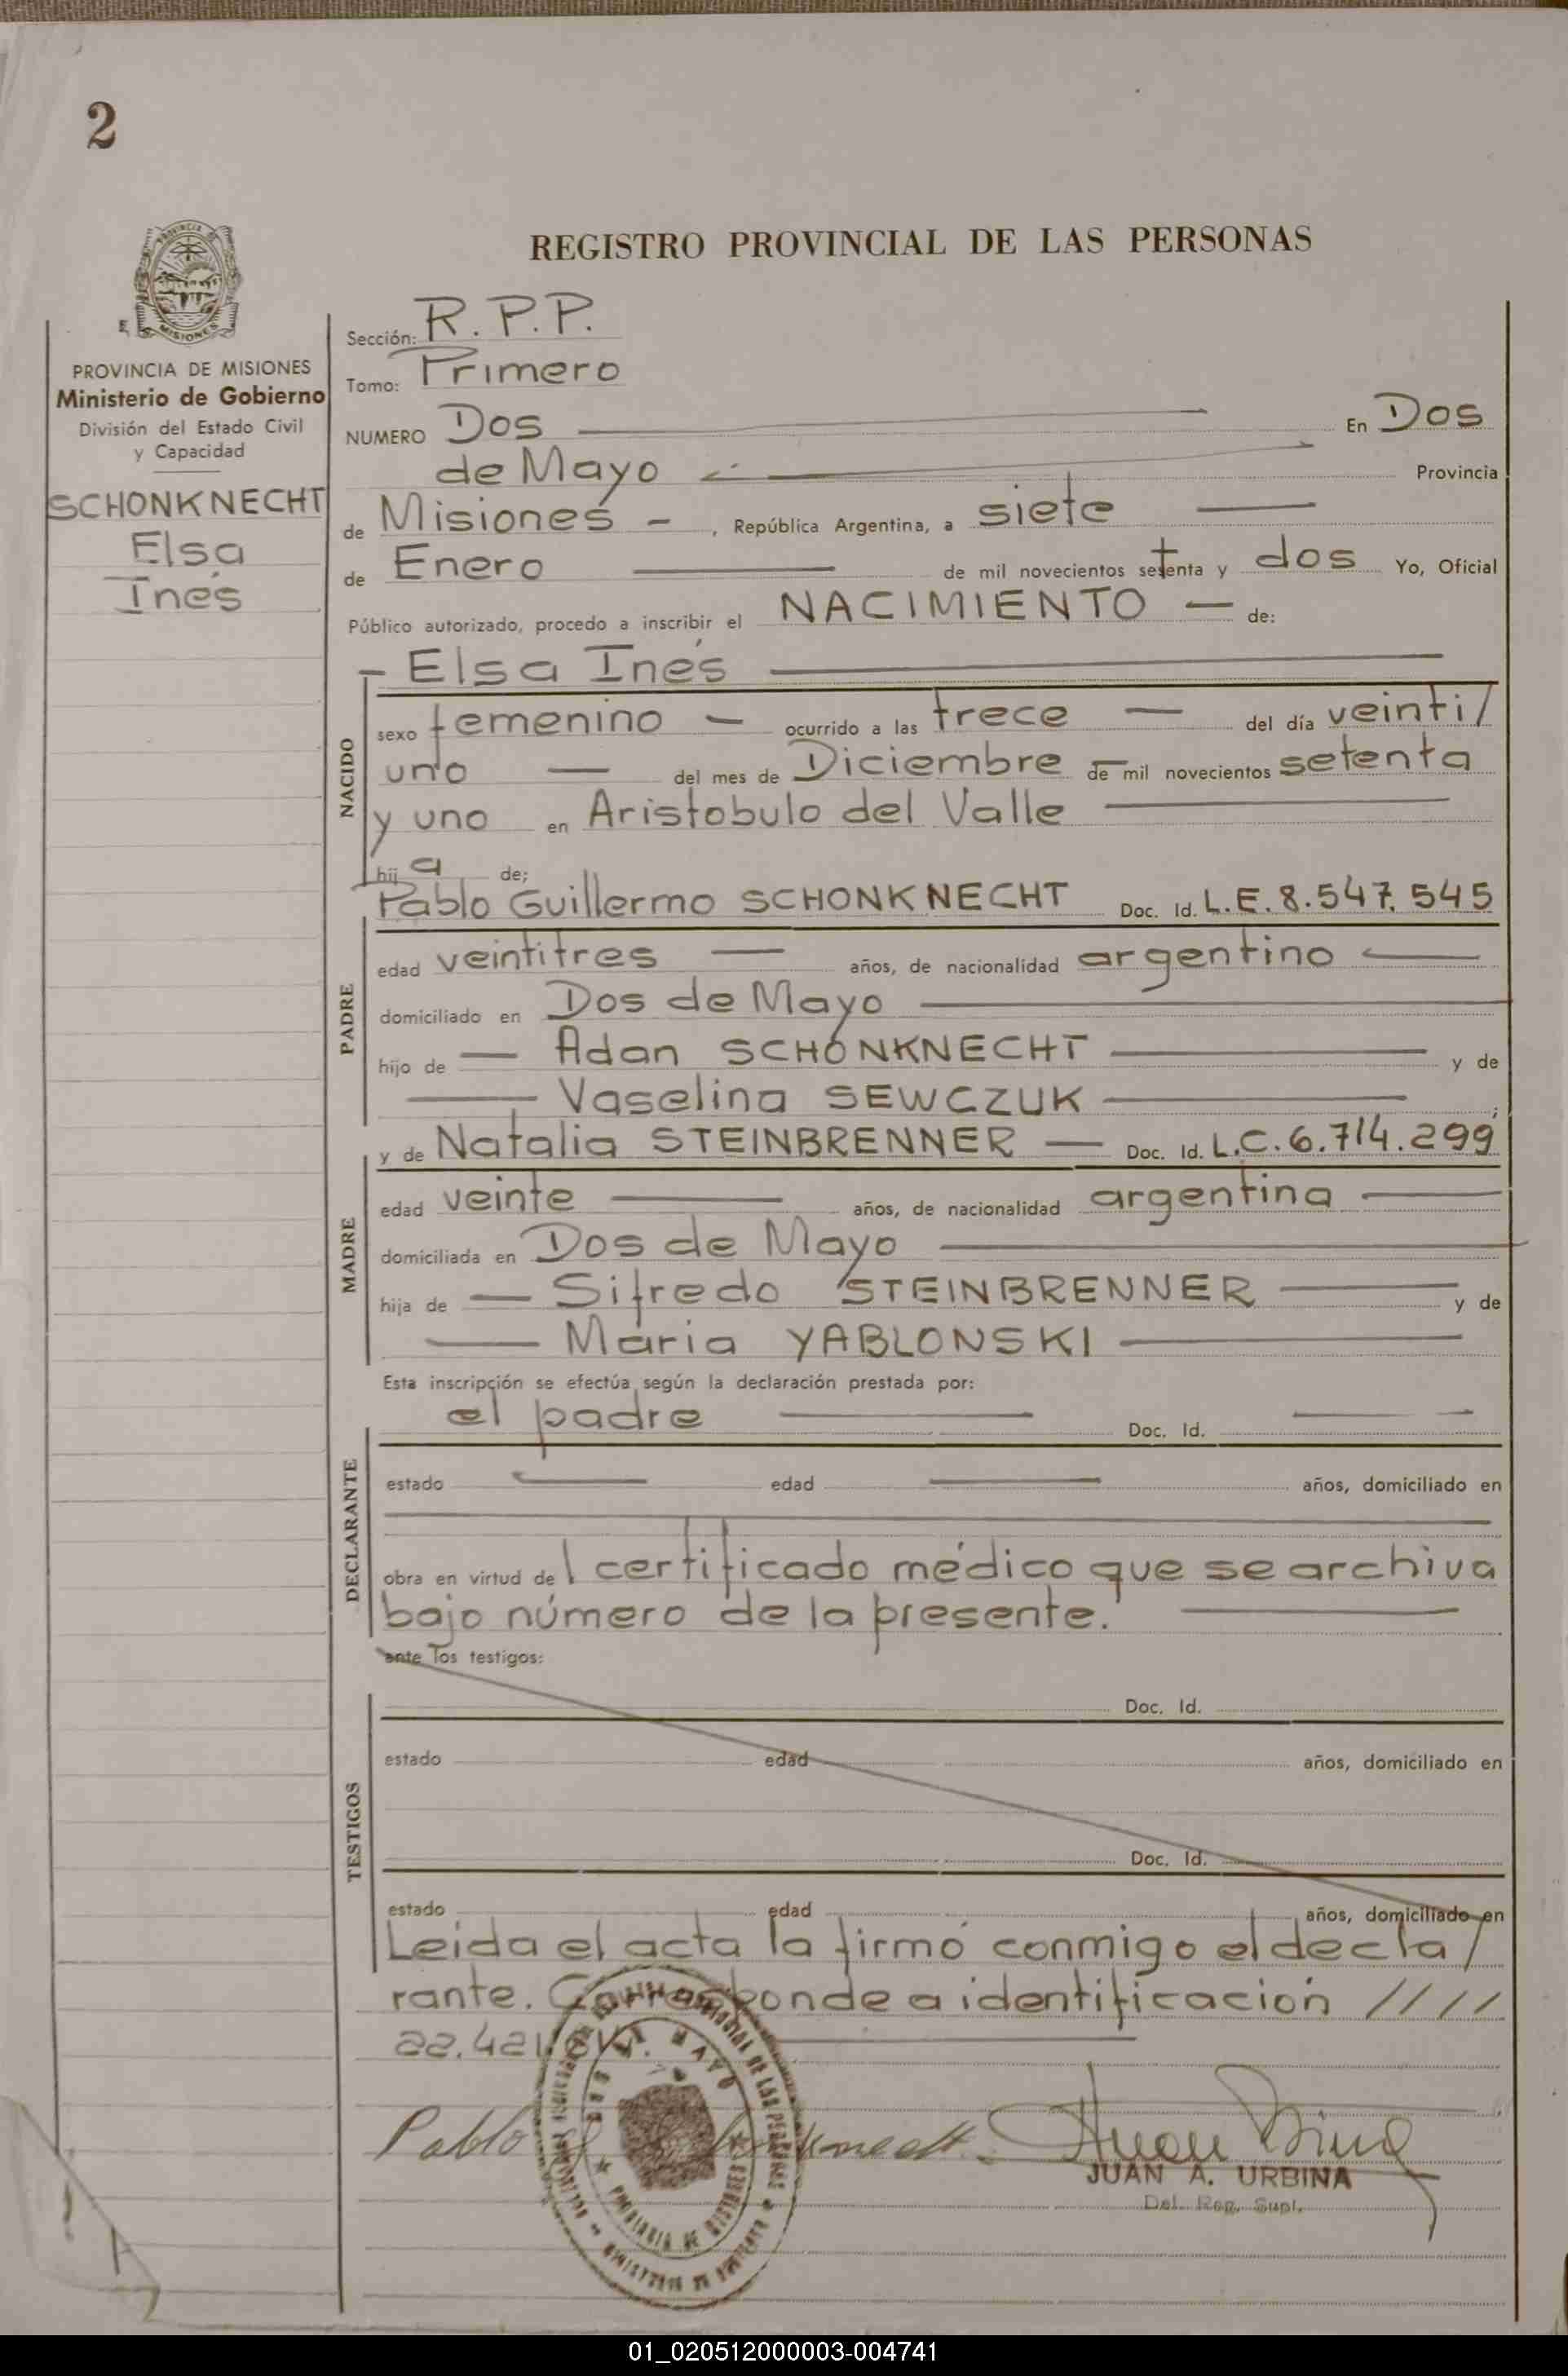 2
REGISTRO PROVINCIAL DE LAS PERSONAS
PROVINCIA DE MISIONES
Ministerio de Gobierno
División del Estado Civil
y Capacidad
SCHONKNECHT
Elsa
Inés
Sección: R.P.P.
Tomo: Primero
NUMERO Dos En Dos
de Mayo Provincia
de Misiones - , República Argentina, a siete
de Enero de mil novecientos setenta y dos Yo, Oficial
Público autorizado, procedo a inscribir el NACIMIENTO — de:
- Elsa Inés
NACIDO
sexo femenino — ocurrido a las trece — del día veinti/
uno — del mes de Diciembre de mil novecientos setenta
y uno en Aristobulo del Valle
hij a de;
Pablo Guillermo SCHONKNECHT Doc. Id. L.E. 8.547.545
PADRE
edad veintitres — años, de nacionalidad argentino
domiciliado en Dos de Mayo
hijo de — Adan SCHONKNECHT y de
Vaselina SEWCZUK ;
y de Natalia STEINBRENNER — Doc. Id. L.C. 6.714.299
MADRE
edad veinte años, de nacionalidad argentina
domiciliada en Dos de Mayo
hija de — Sifredo STEINBRENNER y de
María YABLONSKI
Esta inscripción se efectúa según la declaración prestada por:
el padre Doc. Id.
DECLARANTE
estado edad años, domiciliado en
obra en virtud de l certificado médico que se archiva
bajo número de la presente.
ante los testigos:
TESTIGOS
Doc. Id.
estado edad años, domiciliado en
Doc. Id.
estado edad años, domiciliado en
Leida el acta la firmó conmigo el decla/
rante. Corresponde a identificación ////
22.421.
Pablo
JUAN A. URBINA
Del. Reg. Supl.
PROVINCIA DE MISIONES
01_020512000003-004741